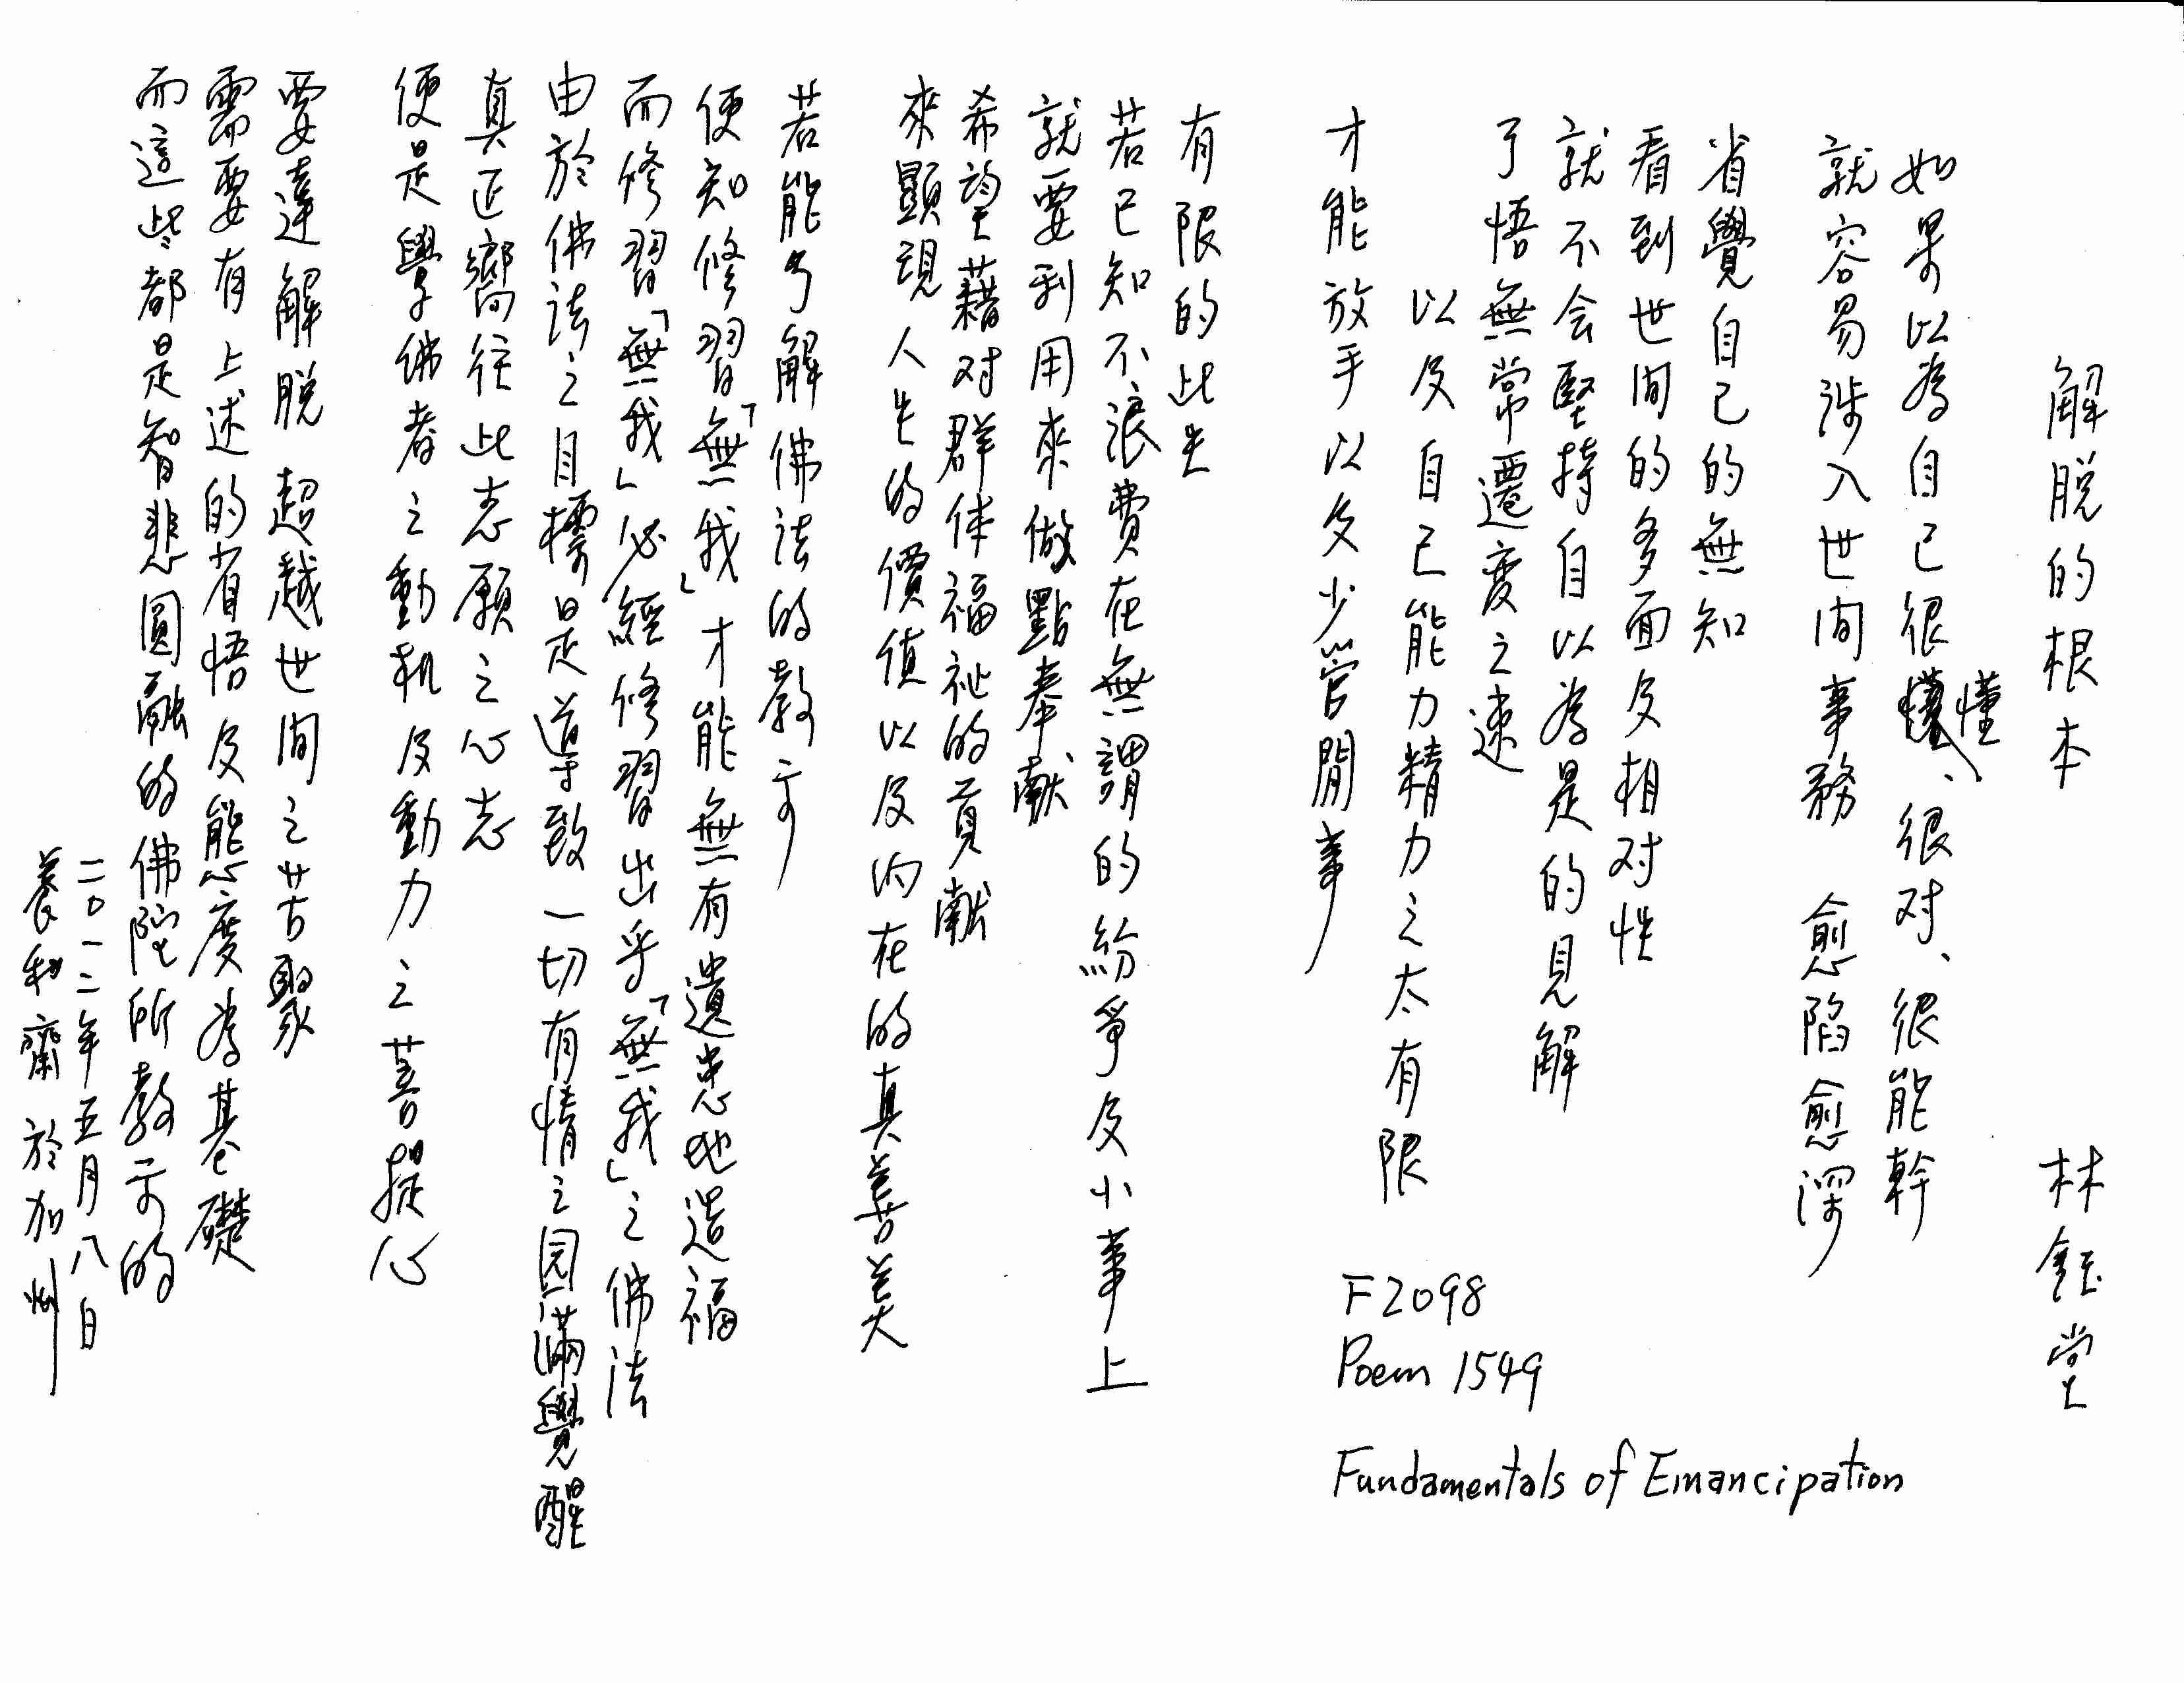 解脱的根本　林鈺堂
如果以為自己很懂、很对、很能幹
就容易涉入世间事務　愈陷愈深
省覺自己的無知
看到世间的多面及相对性
就不会堅持自以為是的見解
了悟無常遷变之速
以及自己能力精力之太有限
才能放手以及少管閒事
有限的此生
若已知不浪費在無謂的紛爭及小事上
就要利用來做點奉献
希望藉对群体福祉的貢献
來顯現人生的價值以及内在的真善美
若能了解佛法的教示
便知修習「無我」才能無有遺患地造福
而修習「無我」必經修習出乎「無我」之佛法
由於佛法之目標是導致一切有情之园满覺醒
真正嚮往此志願之心志
便是學佛者之動机及動力之菩提心
要達解脱　超越世间之苦聚
需要有上述的省悟及態度為基礎
而這些都是智悲圓融的佛陀所教示的
二〇一二年五月八日
養和齋　於加州
F2098
Poem 1549
Fundamentals of Emancipation